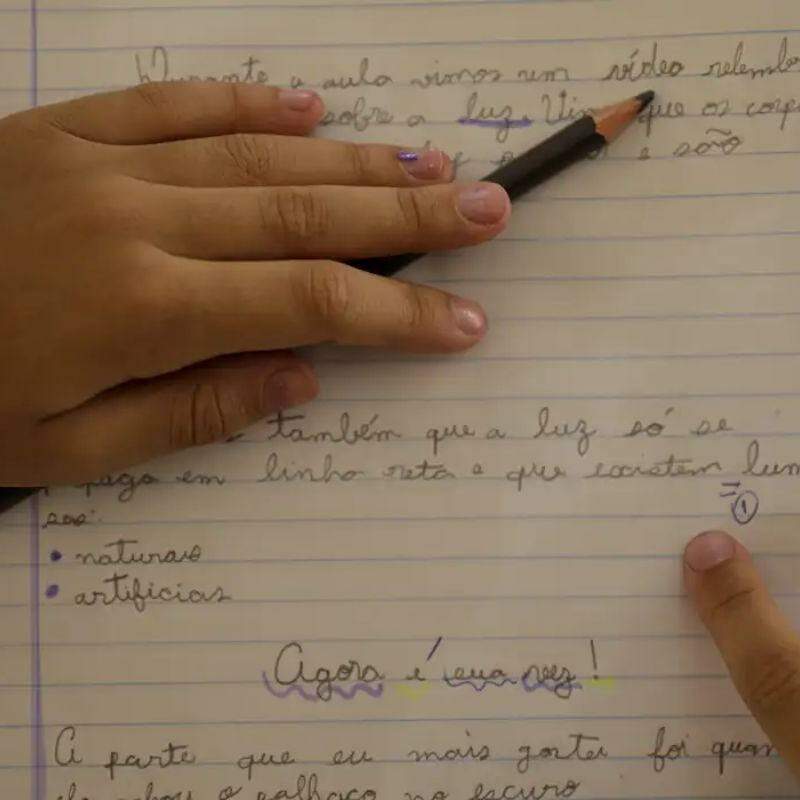 Durante a aula vimos um vídeo relemb
sobre a luz. Vi que os corp
e são
também que a luz só se
paga em linha reta e que existem lum
①
sos:
• naturais
• artificias
Agora é sua vez!
A parte que eu mais gostei foi quan
o palhaço no escuro